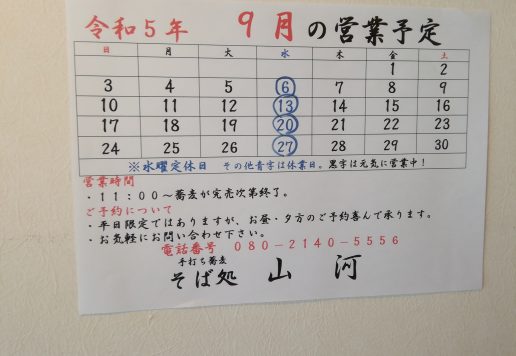 令和5年 9月の営業予定
日 月 火 水 木 金 土
1 2
3 4 5 6 7 8 9
10 11 12 13 14 15 16
17 18 19 20 21 22 23
24 25 26 27 28 29 30
※水曜定休日 その他青字は休業日。黒字は元気に営業中!
営業時間
・11:00~蕎麦が完売次第終了。
ご予約について
・平日限定ではありますが、お昼・夕方のご予約喜んで承ります。
・お気軽にお問い合わせ下さい。
電話番号 080-2140-5556
手打ち蕎麦
そば処 山河